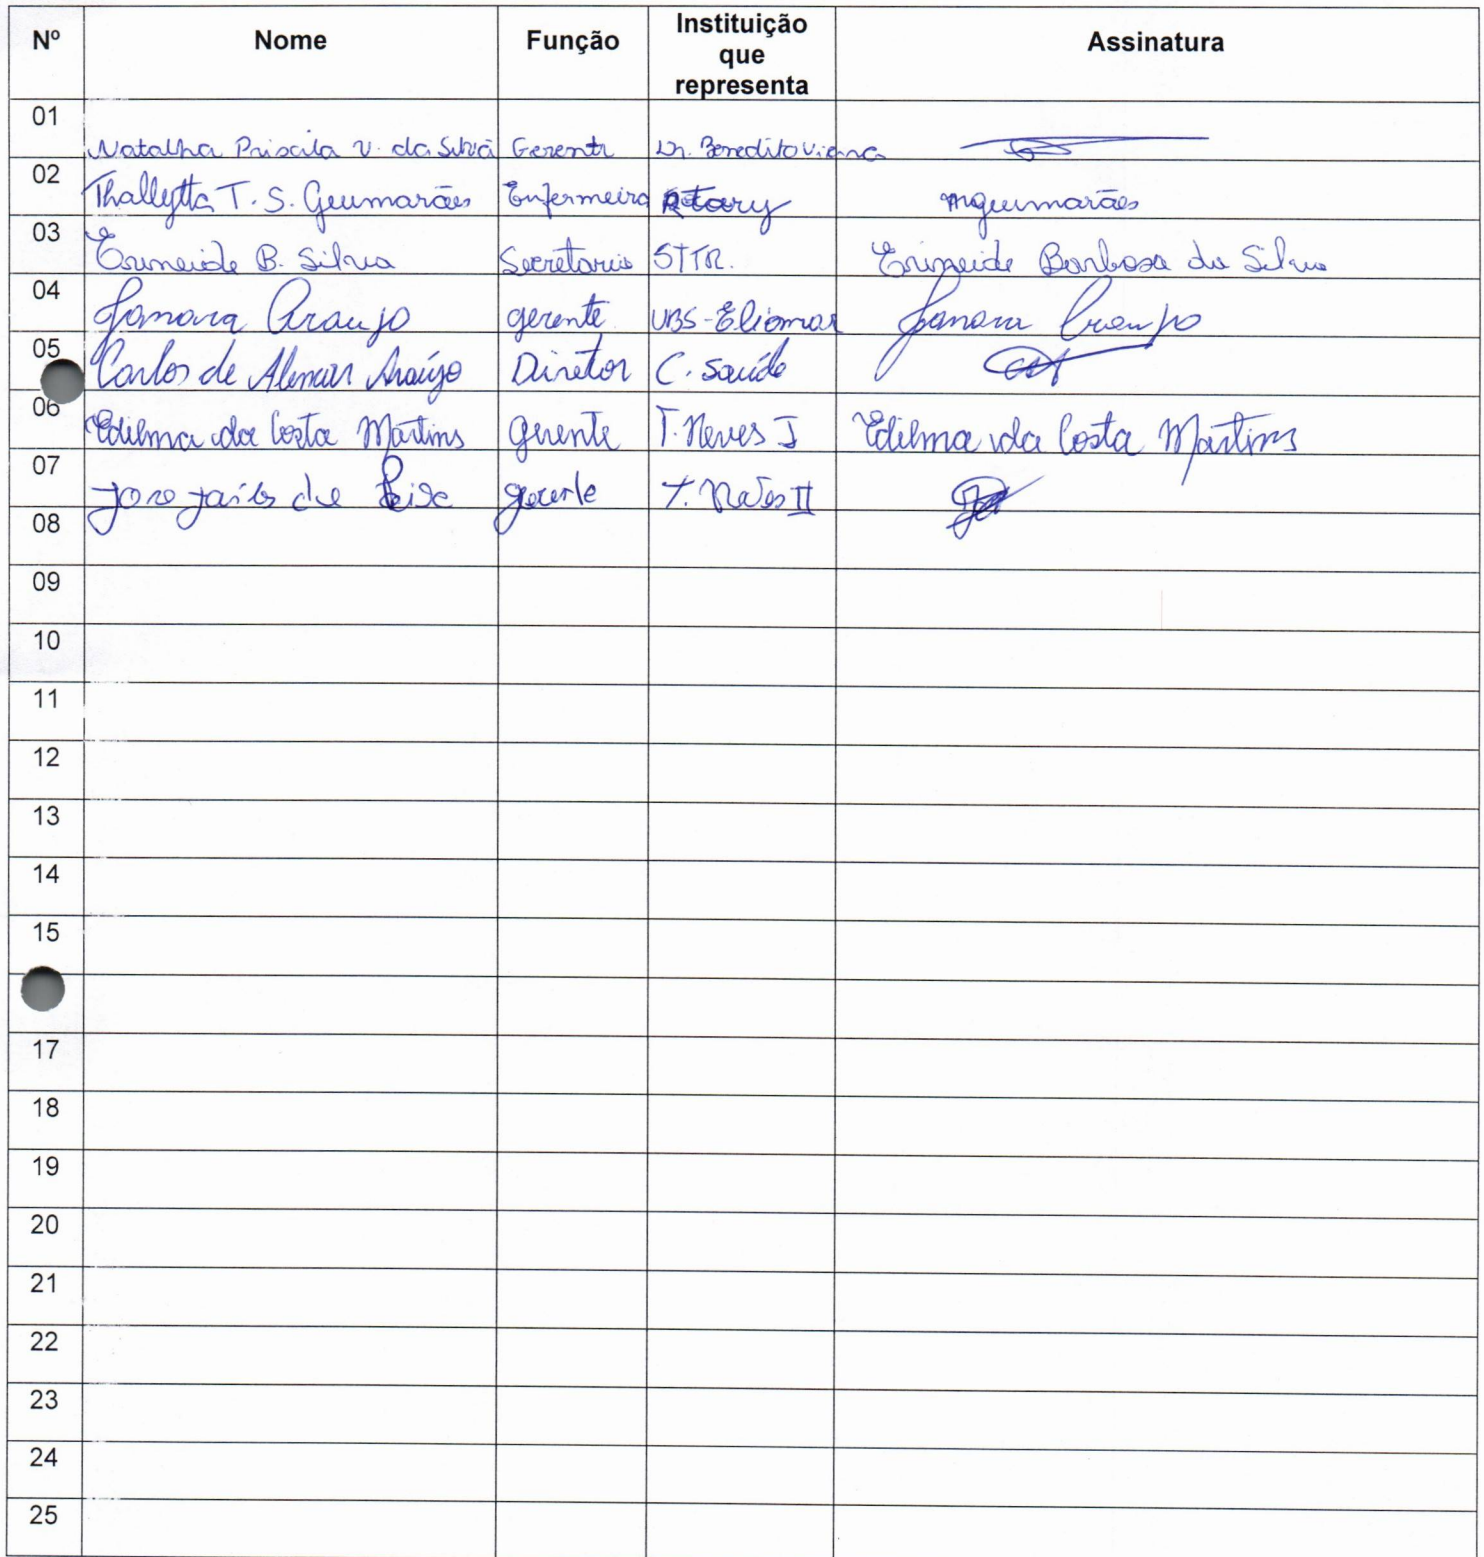 Nº Nome Função Instituição que representa Assinatura
01 Natalha Priscila V. da Silva Gerente Dr. Benedito Vieira
02 Thallytta T. S. Guimarães Enfermeira Rotary Guimarães
03 Erineide B. Silva Secretaria STTR. Erineide Barbosa da Silva
04 Janara Araujo gerente UBS-Eliomar Janara Araujo
05 Carlos de Alencar Araújo Diretor C. Saúde
06 Edilma da Costa Martins gerente T. Neves I Edilma da Costa Martins
07 Jose de gerente T. Neves II
08
09
10
11
12
13
14
15
17
18
19
20
21
22
23
24
25